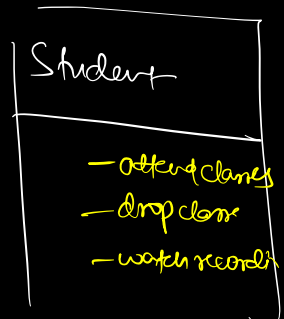 Student
- attend classes
- drop classe
- watch recordi